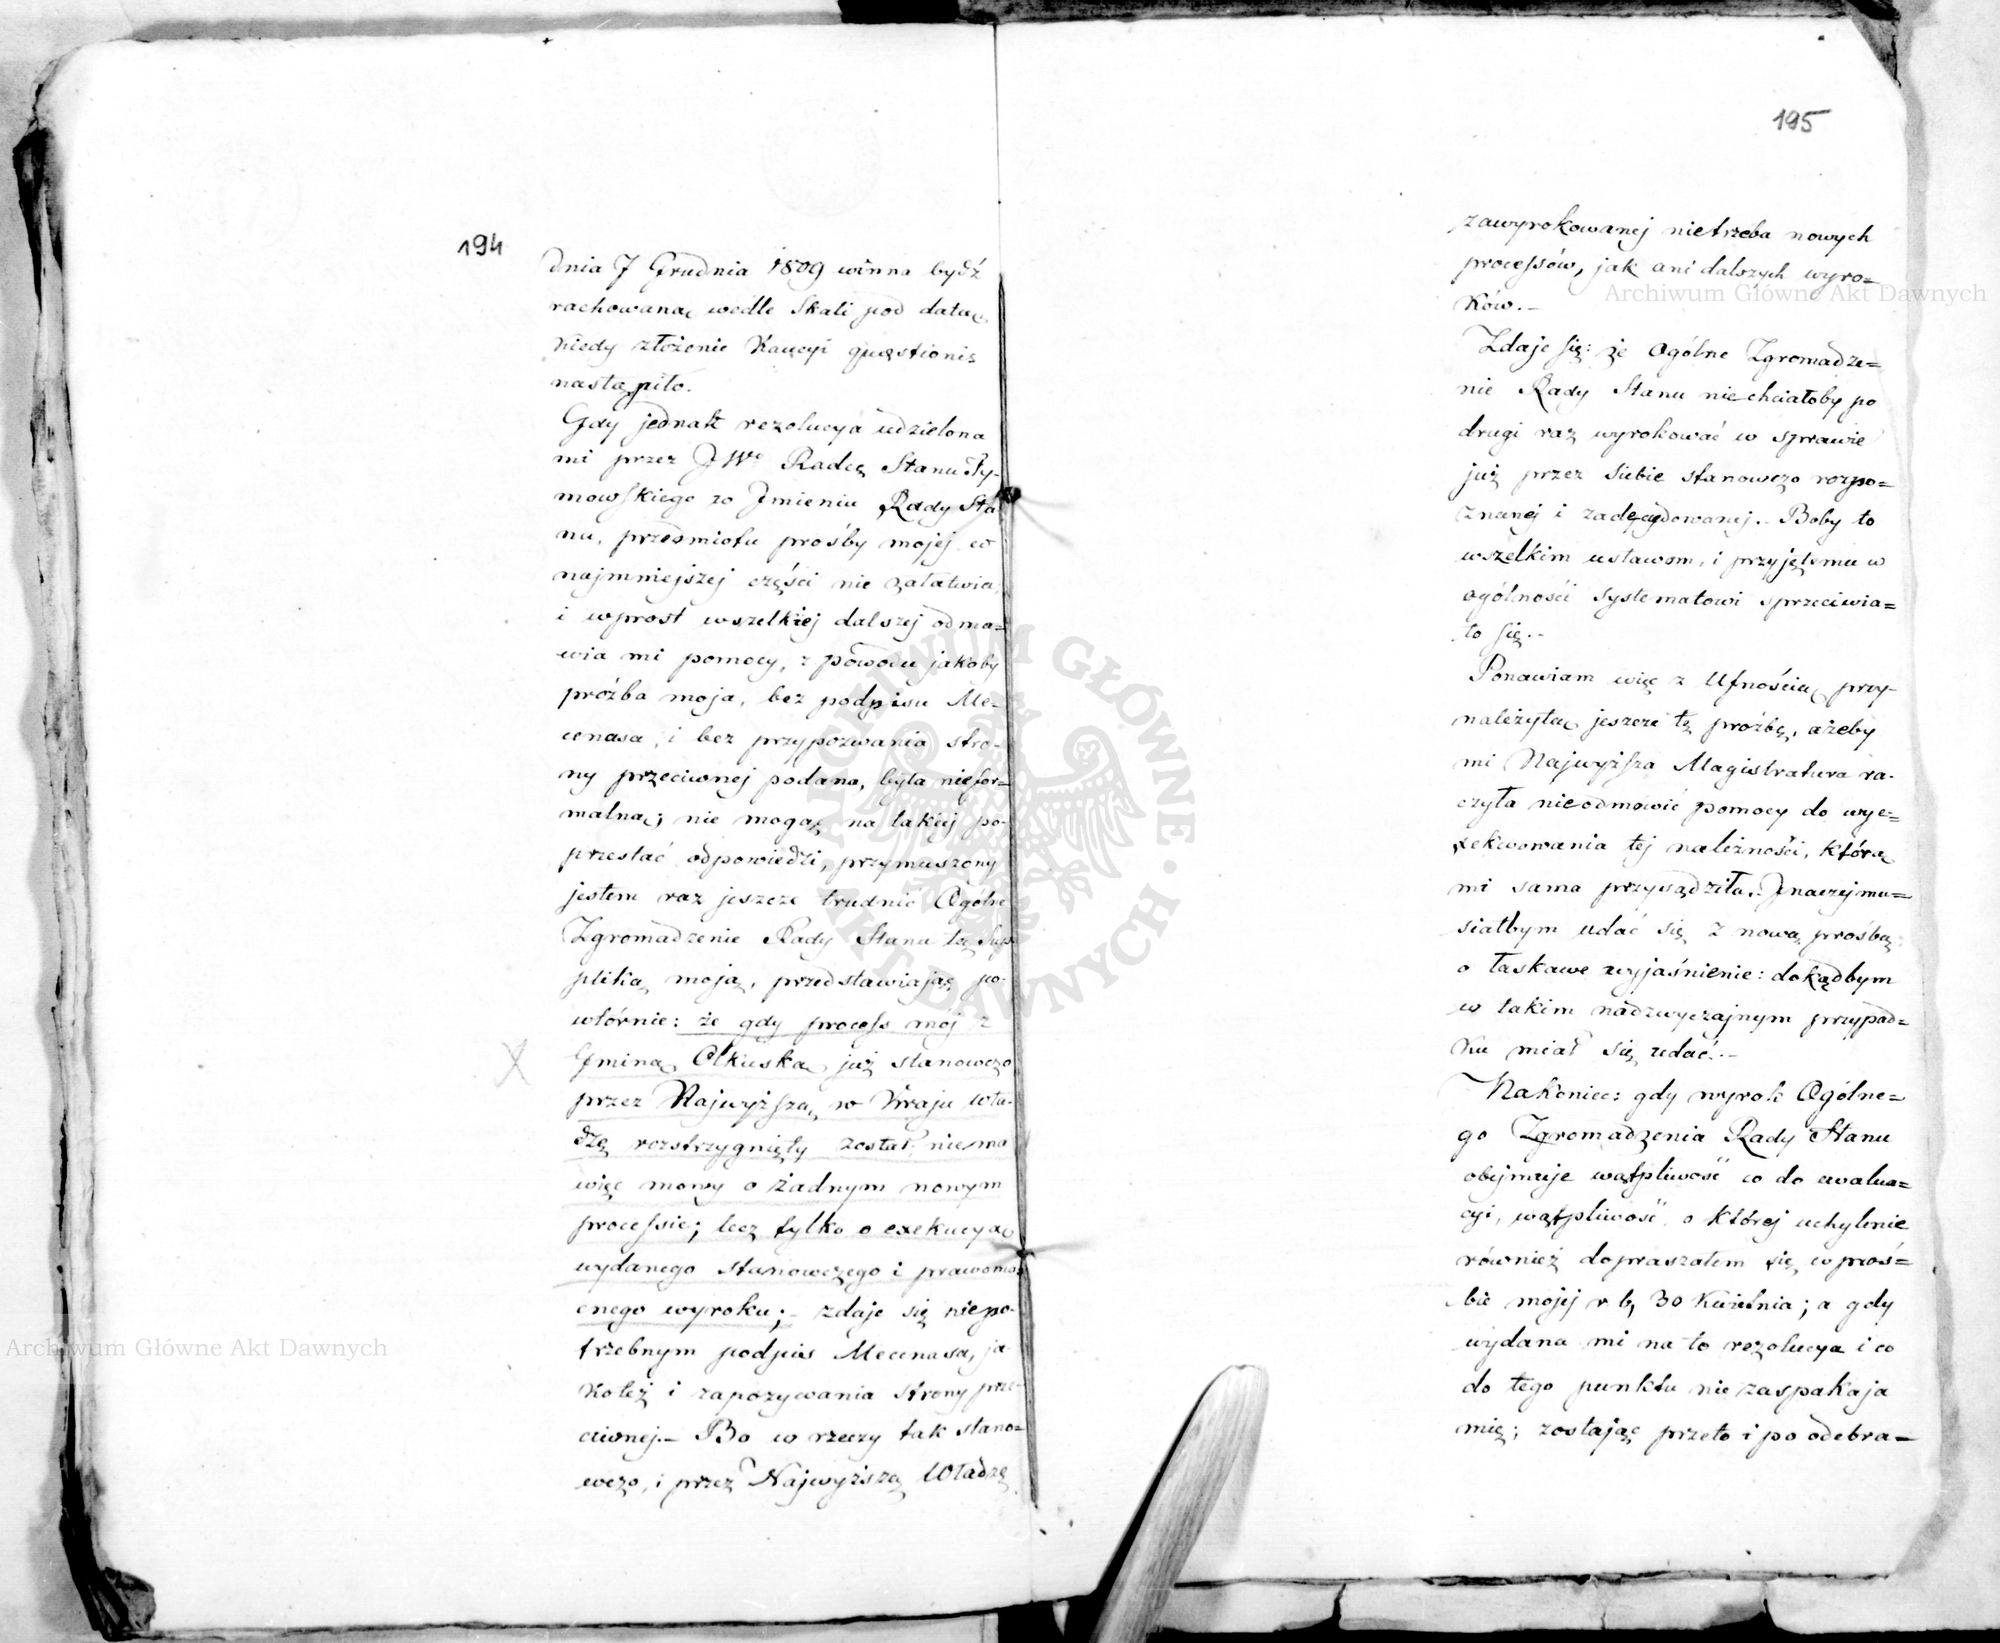 194
dnia 7 Grudnia 1809 winna bydź
rachowaną wedle Skali pod datą,
kiedy złożenie Kaucyi quæstionis
nastąpiło.
Gdy jednak rezolucya udzielona
mi przez JWo Radcę Stanu Ty-
mowskiego w Jmieniu Rady Sta
nu, przedmiotu prośby mojej w
najmniejszej części nie załatwia,
i wprost wszelkiej dalszej odma=
wia mi pomocy, z powodu jakoby
próżba moja, bez podpisu Me-
cenasa, i bez przypozwania stro-
ny przeciwnej podana, była niefor=
malną; nie mogąc na takiej po-
przestać odpowiedzi, przymuszony
jestem raz jeszcze trudnić Ogólne
Zgromadzenie Rady Stanu tą Sup
pliką moją, przedstawiając po-
wtórnie: że gdy process mój z
Gminą Olkuską już stanowczo
przez Najwyższą w Kraju wła-
dzę rozstrzygnięty został, niema
więc mowy o żadnym nowym
processie; lecz tylko o exekucyą
wydanego stanowczego i prawomo
cnego wyroku; – zdaje się niepo-
trzebnym podpis Mecenasa, ja
koteż i zapozywania strony prze-
ciwnej. – Bo w rzeczy tak stano=
wczo, i przez Najwyższą Władzę
195
zawyrokowanej nietrzeba nowych
processów, jak ani dalszych wyro=
ków. –
Zdaje się: że Ogólne Zgromadze=
nie Rady Stanu niechciałoby po
drugi raz wyrokować w sprawie
już przez siebie stanowczo rozpo=
znanej i zadecydowanej. – Boby to
wszelkim ustawom, i przyjętemu w
ogólności systematowi sprzeciwia=
ło się. –
Ponawiam więc z Ufnością przy-
należytą jeszcze tę próżbę, ażeby
mi Najwyższa Magistratura ra-
czyła nieodmówić pomocy do wye=
xekwowania tej należności, którą
mi sama przysądziła. Jnaczej mu=
siałbym udać się z nową prośbą
o łaskawe wyjaśnienie: dokądbym
w takim nadzwyczajnym przypad=
ku miał się udać. –
Nakoniec: gdy wyrok Ogólne=
go Zgromadzenia Rady Stanu
obejmuje wątpliwość co do ewalua=
cyi, wątpliwość, o której uchylenie
również dopraszałem się w proś=
bie mojej r b, 30 Kwietnia; a gdy
wydana mi na to rezolucya i co
do tego punktu nie zaspakaja
mię; zostając przeto i po odebra=
Archiwum Główne Akt Dawnych
Archiwum Główne Akt Dawnych
ARCHIWUM GŁÓWNE · AKT DAWNYCH ·